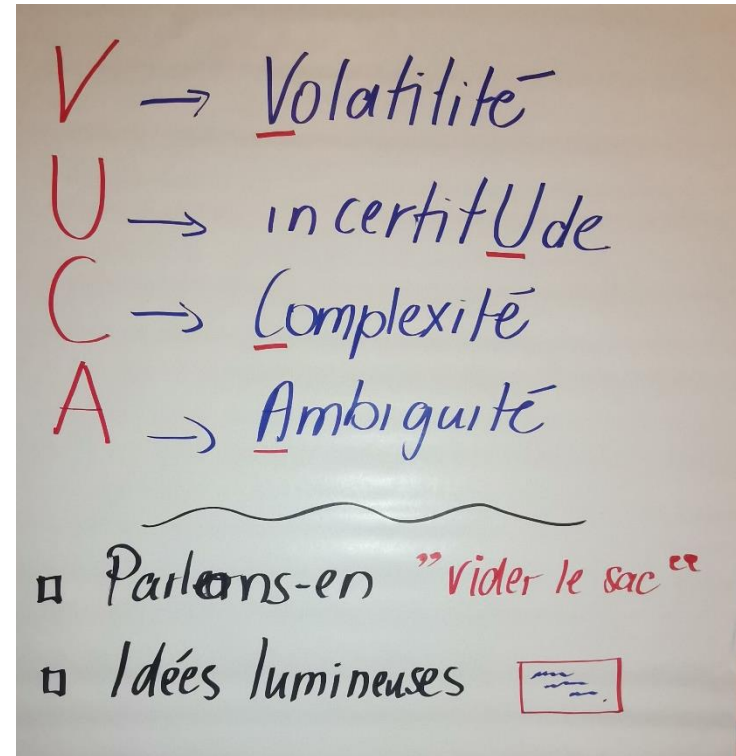 V → Volatilité
U → incertitUde
C → Complexité
A → Ambiguité
□ Parlons-en ”vider le sac“
□ Idées lumineuses